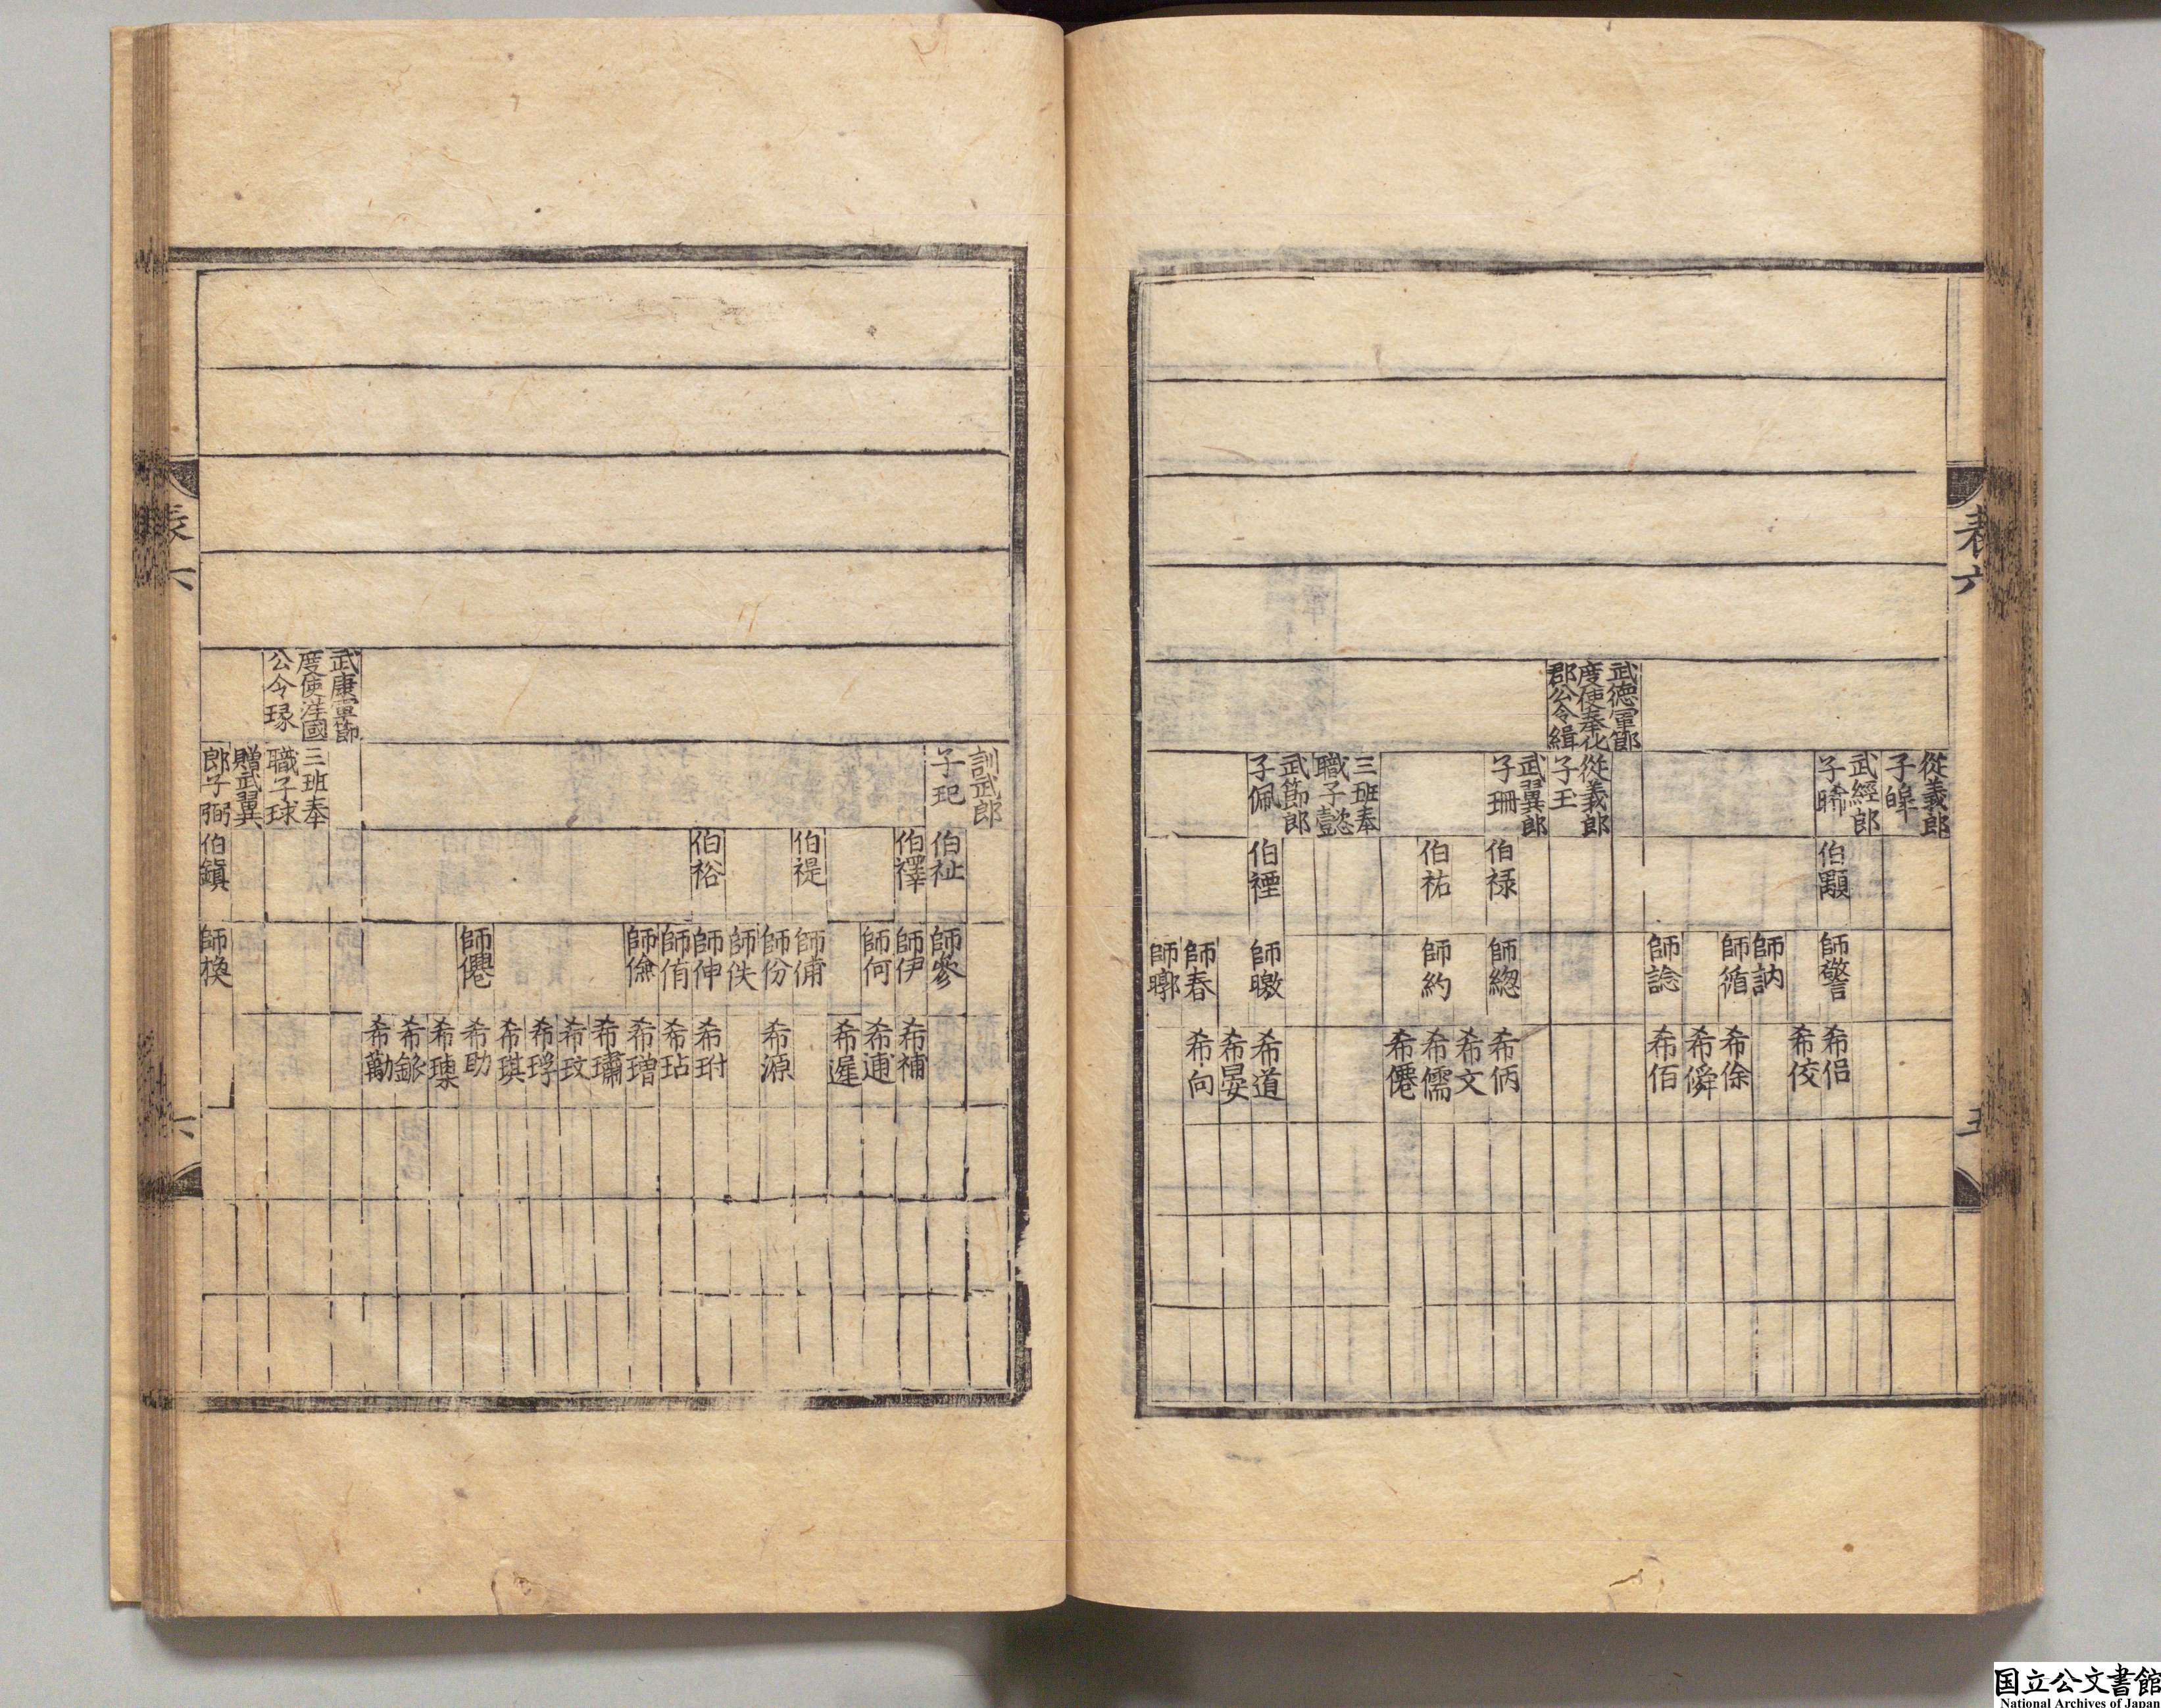 表六
五
武德軍節
度使奉化
郡公令緝
從義郎
子皡
武經郎
子晞
從義郎
子玉
武翼郎
子珊
三班奉
職子懿
武節郎
子佩
伯顒
伯祿
伯祐
伯禋
師警
師訥
師循
師諗
師總
師約
師曒
師春
師曔
希侣
希佼
希俆
希僢
希佰
希㑂
希文
希儒
希僊
希道
希晏
希向
武康軍節
度使洋國
公令琭
訓武郎
子玘
三班奉
職子球
贈武翼
郎子弼
伯祉
伯禪
伯禔
伯裕
伯鎭
師參
師伊
師何
師俌
師份
師佚
師伸
師侑
師儉
師僊
師換
希補
希逋
希遟
希源
希玬
希玷
希璔
希璛
希玟
希琈
希琪
希助
希瑧
希銀
希勱
表六
六
国立公文書館
National Archives of Japan